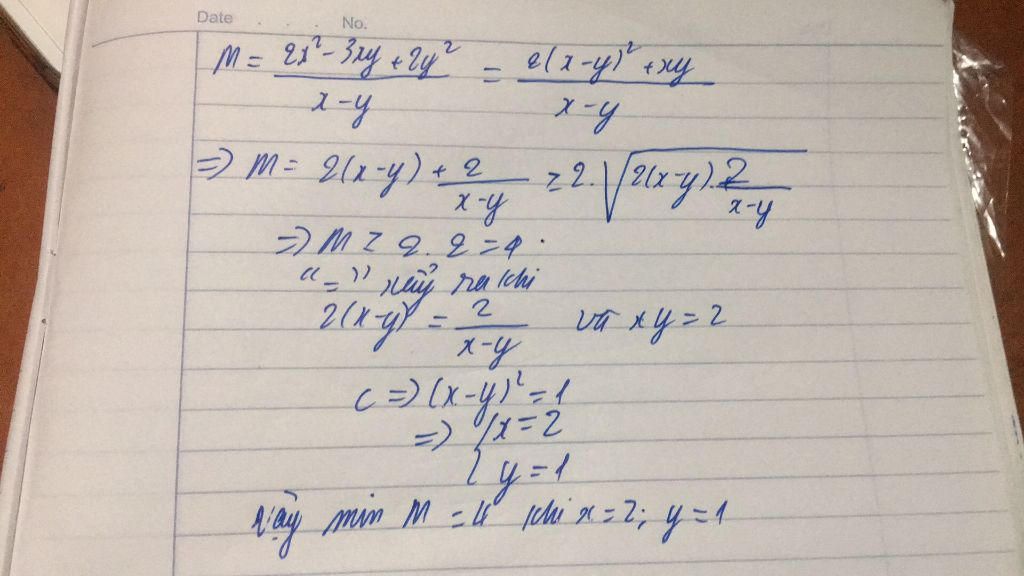 Date . . . . No.
M = \frac{2x^2 - 3xy + 2y^2}{x-y} = \frac{2(x-y)^2 + xy}{x-y}
=> M = 2(x-y) + \frac{2}{x-y} ≥ 2.\sqrt{2(x-y).\frac{2}{x-y}}
=> M ≥ 2.2 = 4.
"=" xảy ra khi
2(x-y) = \frac{2}{x-y} và xy = 2
<=> (x-y)^2 = 1
=> { x = 2
{ y = 1
Vậy min M = 4 khi x = 2; y = 1